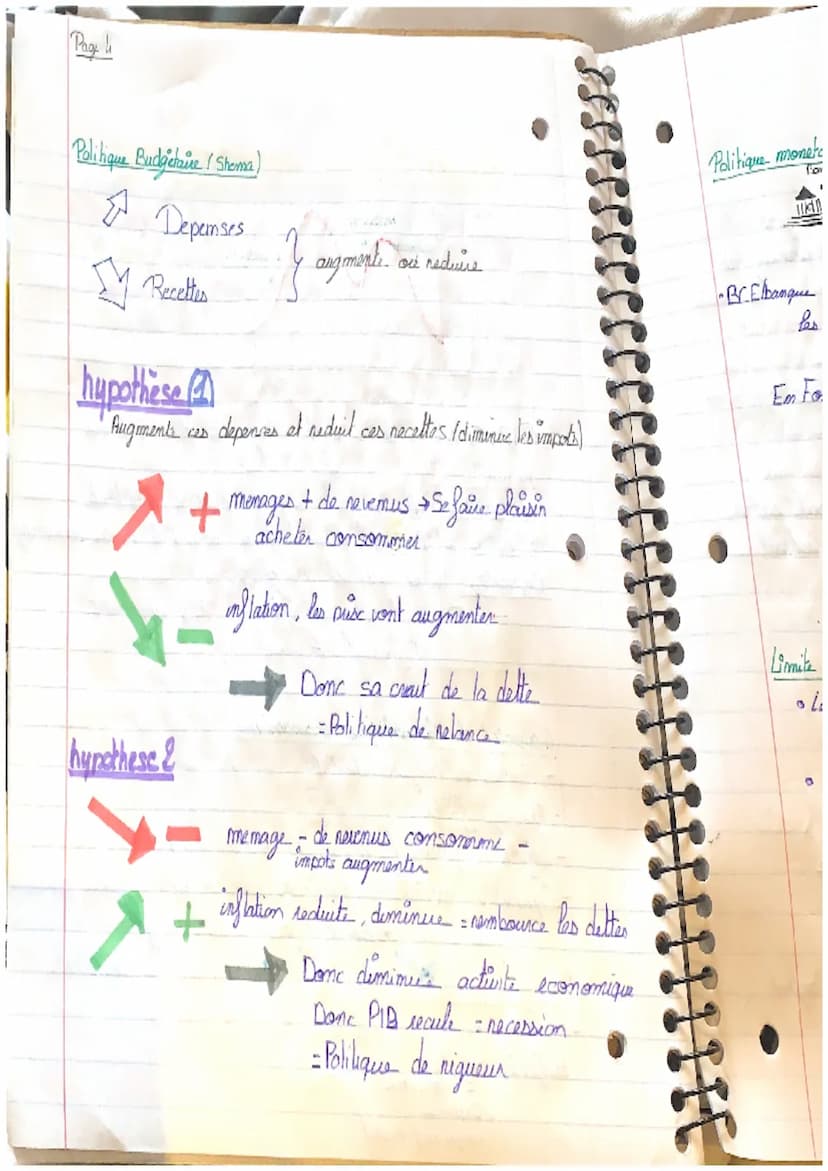 Page 4
Politique Budgétaire (Shema)
Depenses
augmente ou reduire
Recettes
hypothèse (1)
Augmente ces depenses et reduit ces recettes (diminue les impots)
+ menages + de revenus → Se faire plaisir
acheter consommer
- inflation, les prix vont augmenter
Donc sa creut de la dette
= Politique de relance
hypothese 2
- menage - de revenus consomme -
impots augmenter
+ inflation reduite, diminue = rembource les dettes
Donc diminue activite economique
Donc PIB recule = recession
= Politique de rigueur
Politique moneta
• BCE/banque
les
En Fo
Limite